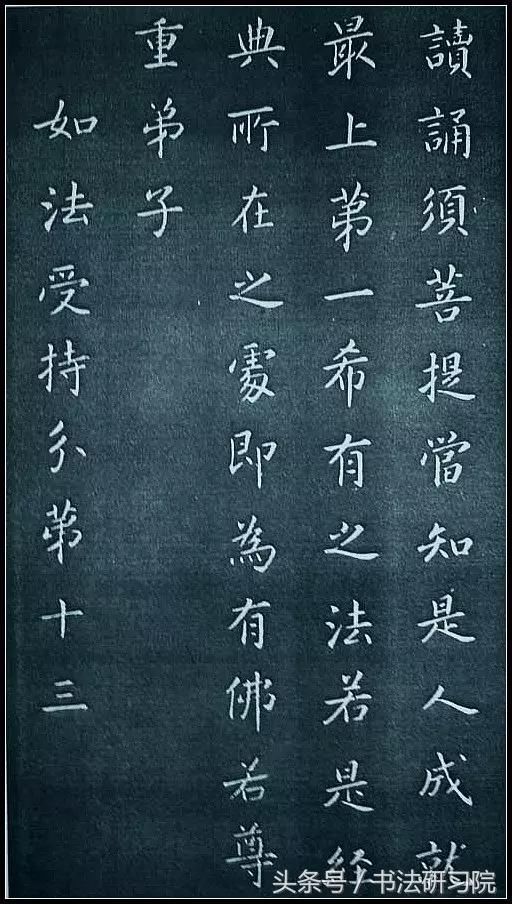 讀誦須菩提當知是人成就
最上第一希有之法若是經
典所在之處即為有佛若尊
重弟子
如法受持分第十三
头条号 / 书法研习院